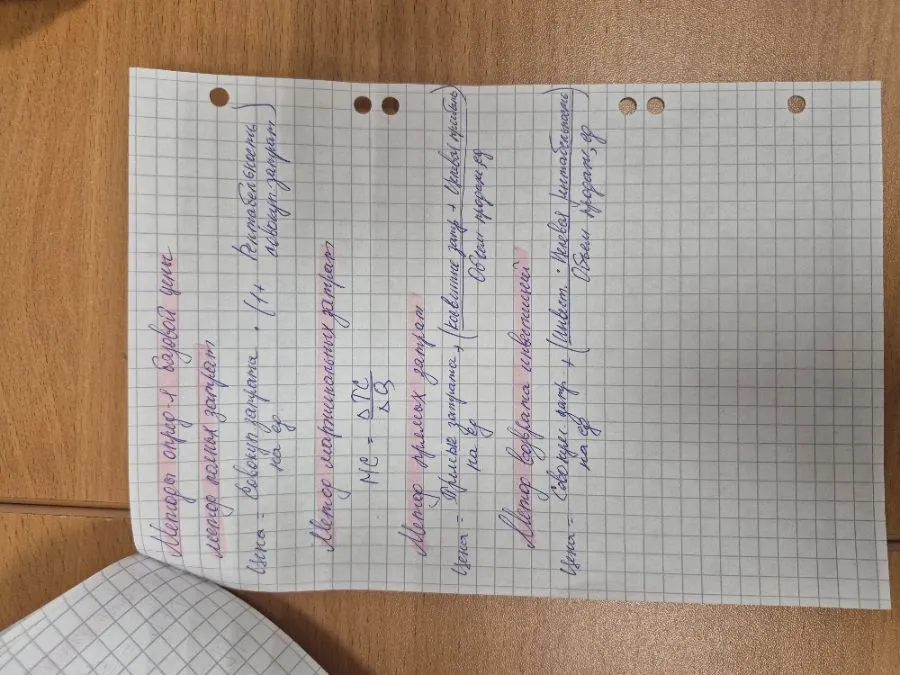 Методы опред-я базовой цены
метод полных затрат
Цена = Совокуп затраты на ед · (1 + Рентабельность совокуп затрат)
Метод маржинальных затрат
MC = ΔTC / ΔQ
Метод прямых затрат
Цена = Прямые затраты на ед + (Косвенные затр + Целевая прибыль / Объем продаж, ед)
Метод возврата инвестиций
Цена = Совокуп затр на ед + (Инвест. · Целевая рентабельность / Объем продаж, ед)